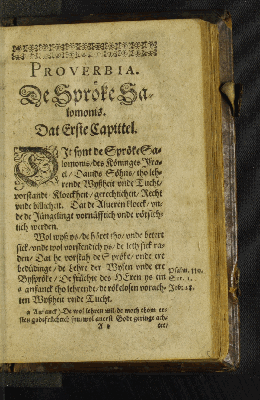 PROVERBIA.
De Spröke Sa-
lomonis.
Dat Erste Capittel.
Dit synt de Spröke Sa-
lomonis/ des Köninges Jsra-
el/ Dauids Söhns/ tho leh-
rende Wyßheit vnde Tucht/
vorstandt/ Kloeckheit/ gerechticheit/ Recht
vnde billicheit. Dat de Aluern kloeck/ vn-
de de Jünglinge vornüfftich vnde vörsich-
tich werden.
Wol wyß ys/ de höret tho/ vnde betert
sick/ vnde wol vorstendich ys/ de leth sick ra-
den/ Dat he vorstah de Spröke/ vnde ere
bedüdinge/ de Lehre der Wysen vnde ere
Byspröke/ De früchte des HEren ys ein
a anfanck tho lehrende/ de rökelosen vorach-
ten Wyßheit vnde Tucht.
Psalm. 110.
Syr. 1.
Job. 28.
a Anfanck) De wol lehren wil/ de moth thom er-
sten gadtfrüchtich syn/ wol auerst Godt geringe ach-
A
tet/